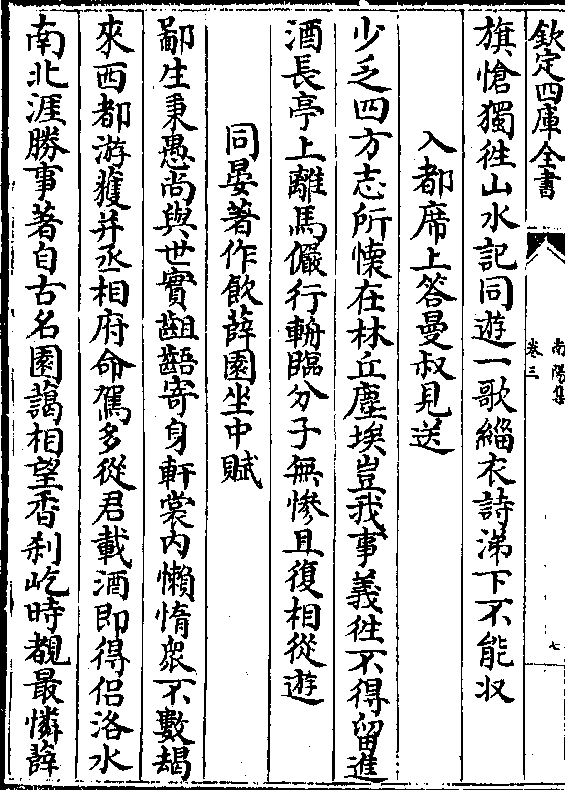 欽定四庫全書
南陽集
卷三
七
旗愴獨徃山水記同遊一歌緇衣詩涕下不能收
入都席上答曼叔見送
少乏四方志所懷在林丘塵埃豈我事義徃不得留進
酒長亭上離馬儼行輈臨分子無慘且復相從遊
同晏著作飲薛園坐中賦
鄙生秉愚尚與世實齟齬寄身軒裳内懶惰衆不數朅
來西都游獲并丞相府命駕多從君載酒即得侣洛水
南北涯勝事著自古名園藹相望香刹屹時覩最憐薛